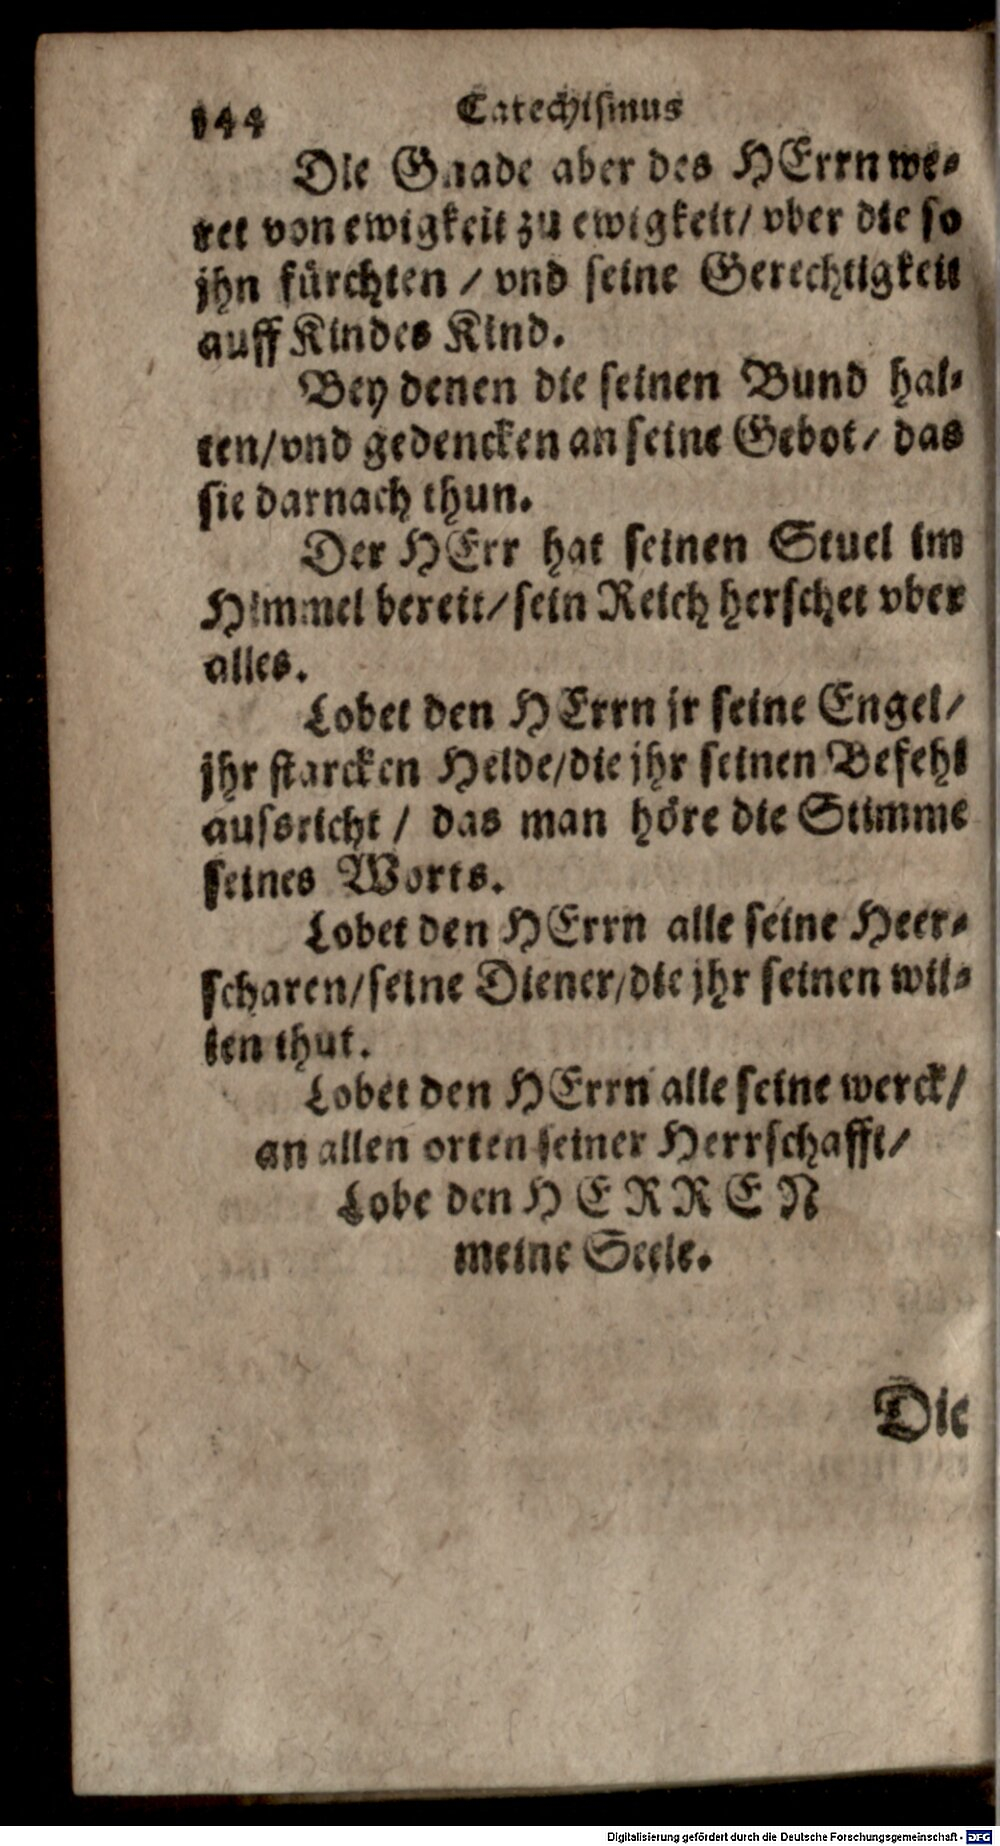 144 Catechismus
Die Gnade aber des HErrn we-
ret von ewigkeit zu ewigkeit/ vber die so
jhn fürchten / vnd seine Gerechtigkeit
auff Kindes Kind.
Bey denen die seinen Bund hal-
ten/vnd gedencken an seine Gebot/ das
sie darnach thun.
Der HErr hat seinen Stuel im
Himmel bereit/sein Reich herschet vber
alles.
Lobet den HErrn jr seine Engel/
jhr starcken Helde/die jhr seinen Befehl
aussricht / das man höre die Stimme
seines Worts.
Lobet den HErrn alle seine Heer-
scharen/seine Diener/die jhr seinen wil-
len thut.
Lobet den HErrn alle seine werck/
an allen orten seiner Herrschafft/
Lobe den HERREN
meine Seele.
Die
Digitalisierung gefördert durch die Deutsche Forschungsgemeinschaft - DFG